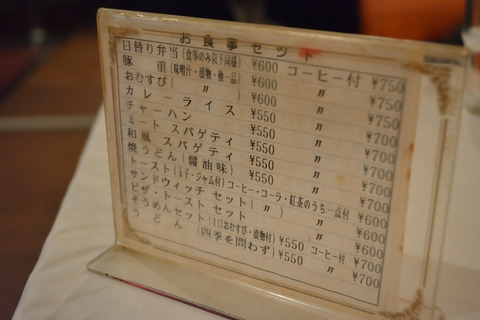 お食事セット
日替り弁当(食事のみ以下同様) ¥600 コーヒー付 ¥750
豚重(味噌汁・漬物・他一品) ¥600 〃 ¥750
おむすび(〃) ¥600 〃 ¥750
カレーライス ¥550 〃 ¥700
チャーハン ¥550 〃 ¥700
ミートスパゲティ ¥550 〃 ¥700
和風スパゲティ ¥550 〃 ¥700
焼うどん(醤油味) ¥550 〃 ¥700
トースト(玉子・ジャム付)コーヒー・コーラ・紅茶のうち一点付 ¥600
サンドウィッチセット(〃) 〃 ¥600
ピザ・トーストセット 〃 ¥600
そうめんセット(1口おむすび・漬物付) ¥550 コーヒー付 ¥700
うどん(四季を問わず) ¥550 〃 ¥700